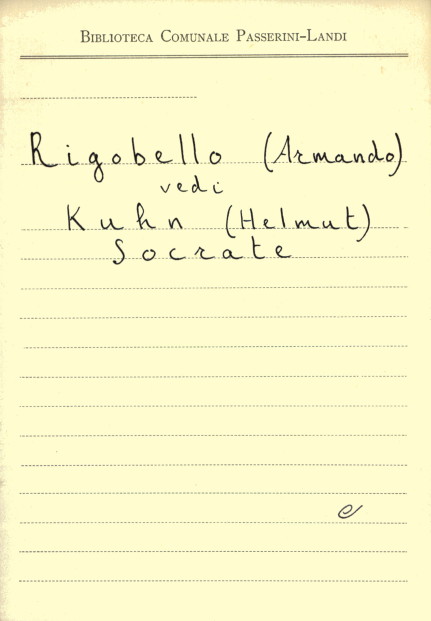 Biblioteca Comunale Passerini-Landi
Rigobello (Armando)
vedi
Kuhn (Helmut)
Socrate
e